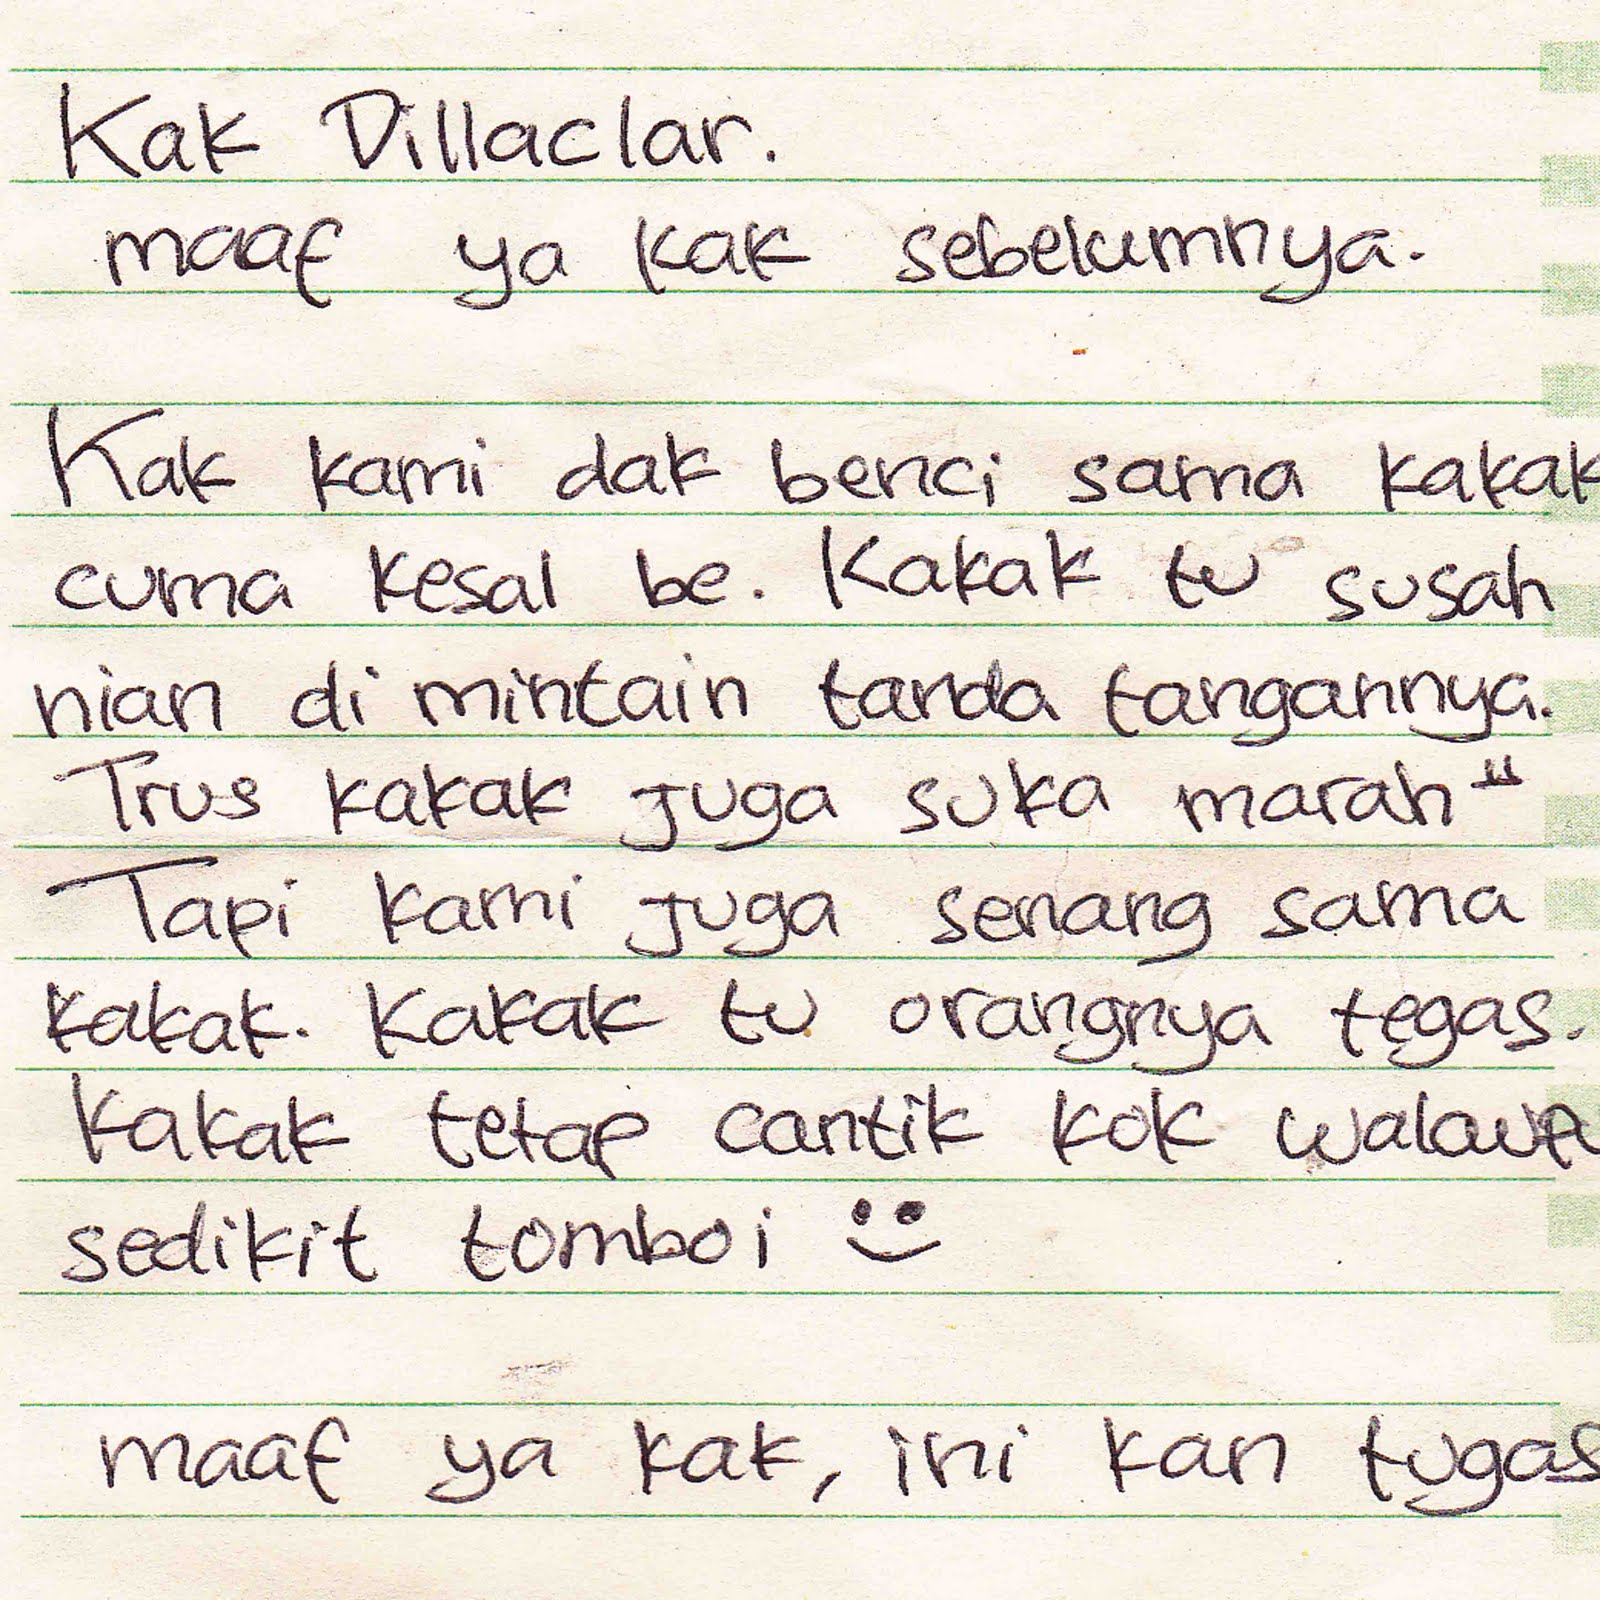 Kak Dillaclar.
maaf ya kak sebelumnya.
Kak kami dak benci sama kakak
cuma kesal be. Kakak tu susah
nian di mintain tanda tangannya.
Trus kakak juga suka marah"
Tapi kami juga senang sama
kakak. Kakak tu orangnya tegas.
Kakak tetap cantik kok
sedikit tomboi
maaf ya kak, ini kan tugas